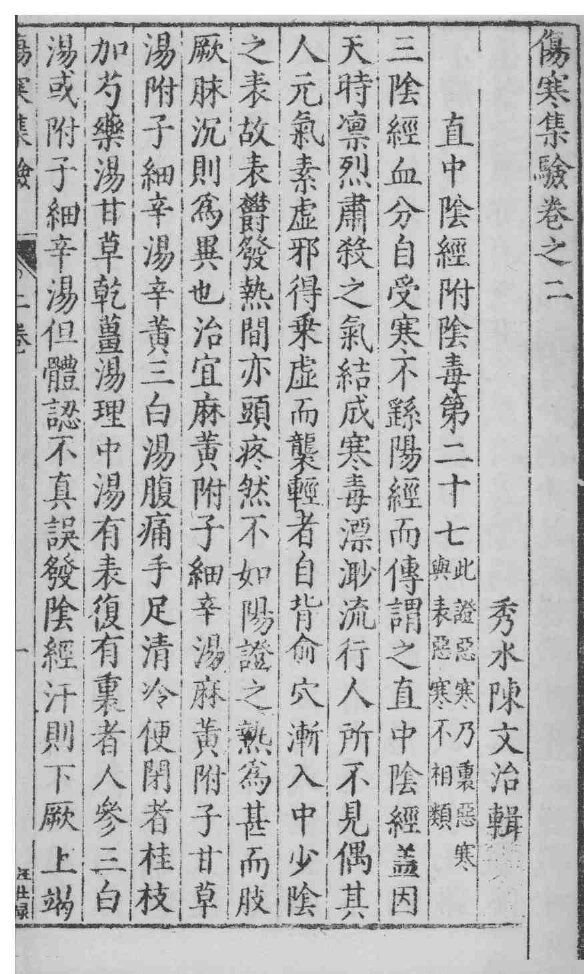 傷寒集驗卷之二
秀水陳文治輯
直中陰經附陰毒第二十七此證惡寒乃裏惡寒
與表惡寒不相類
三陰經血分自受寒不繇陽經而傳謂之直中陰經蓋因
天時凛烈肅殺之氣結成寒毒漂渺流行人所不見偶其
人元氣素虛邪得乘虛而襲輕者自背俞穴漸入中少陰
之表故表欝發熱間亦頭疼然不如陽證之熱爲甚而肢
厥脉沉則爲異也治宜麻黃附子細辛湯麻黃附子甘草
湯附子細辛湯辛黃三白湯腹痛手足清冷便閉者桂枝
加芍藥湯甘草乾薑湯理中湯有表復有裏者人參三白
湯或附子細辛湯但體認不真誤發陰經汗則下厥上竭
傷寒集驗
二卷
一